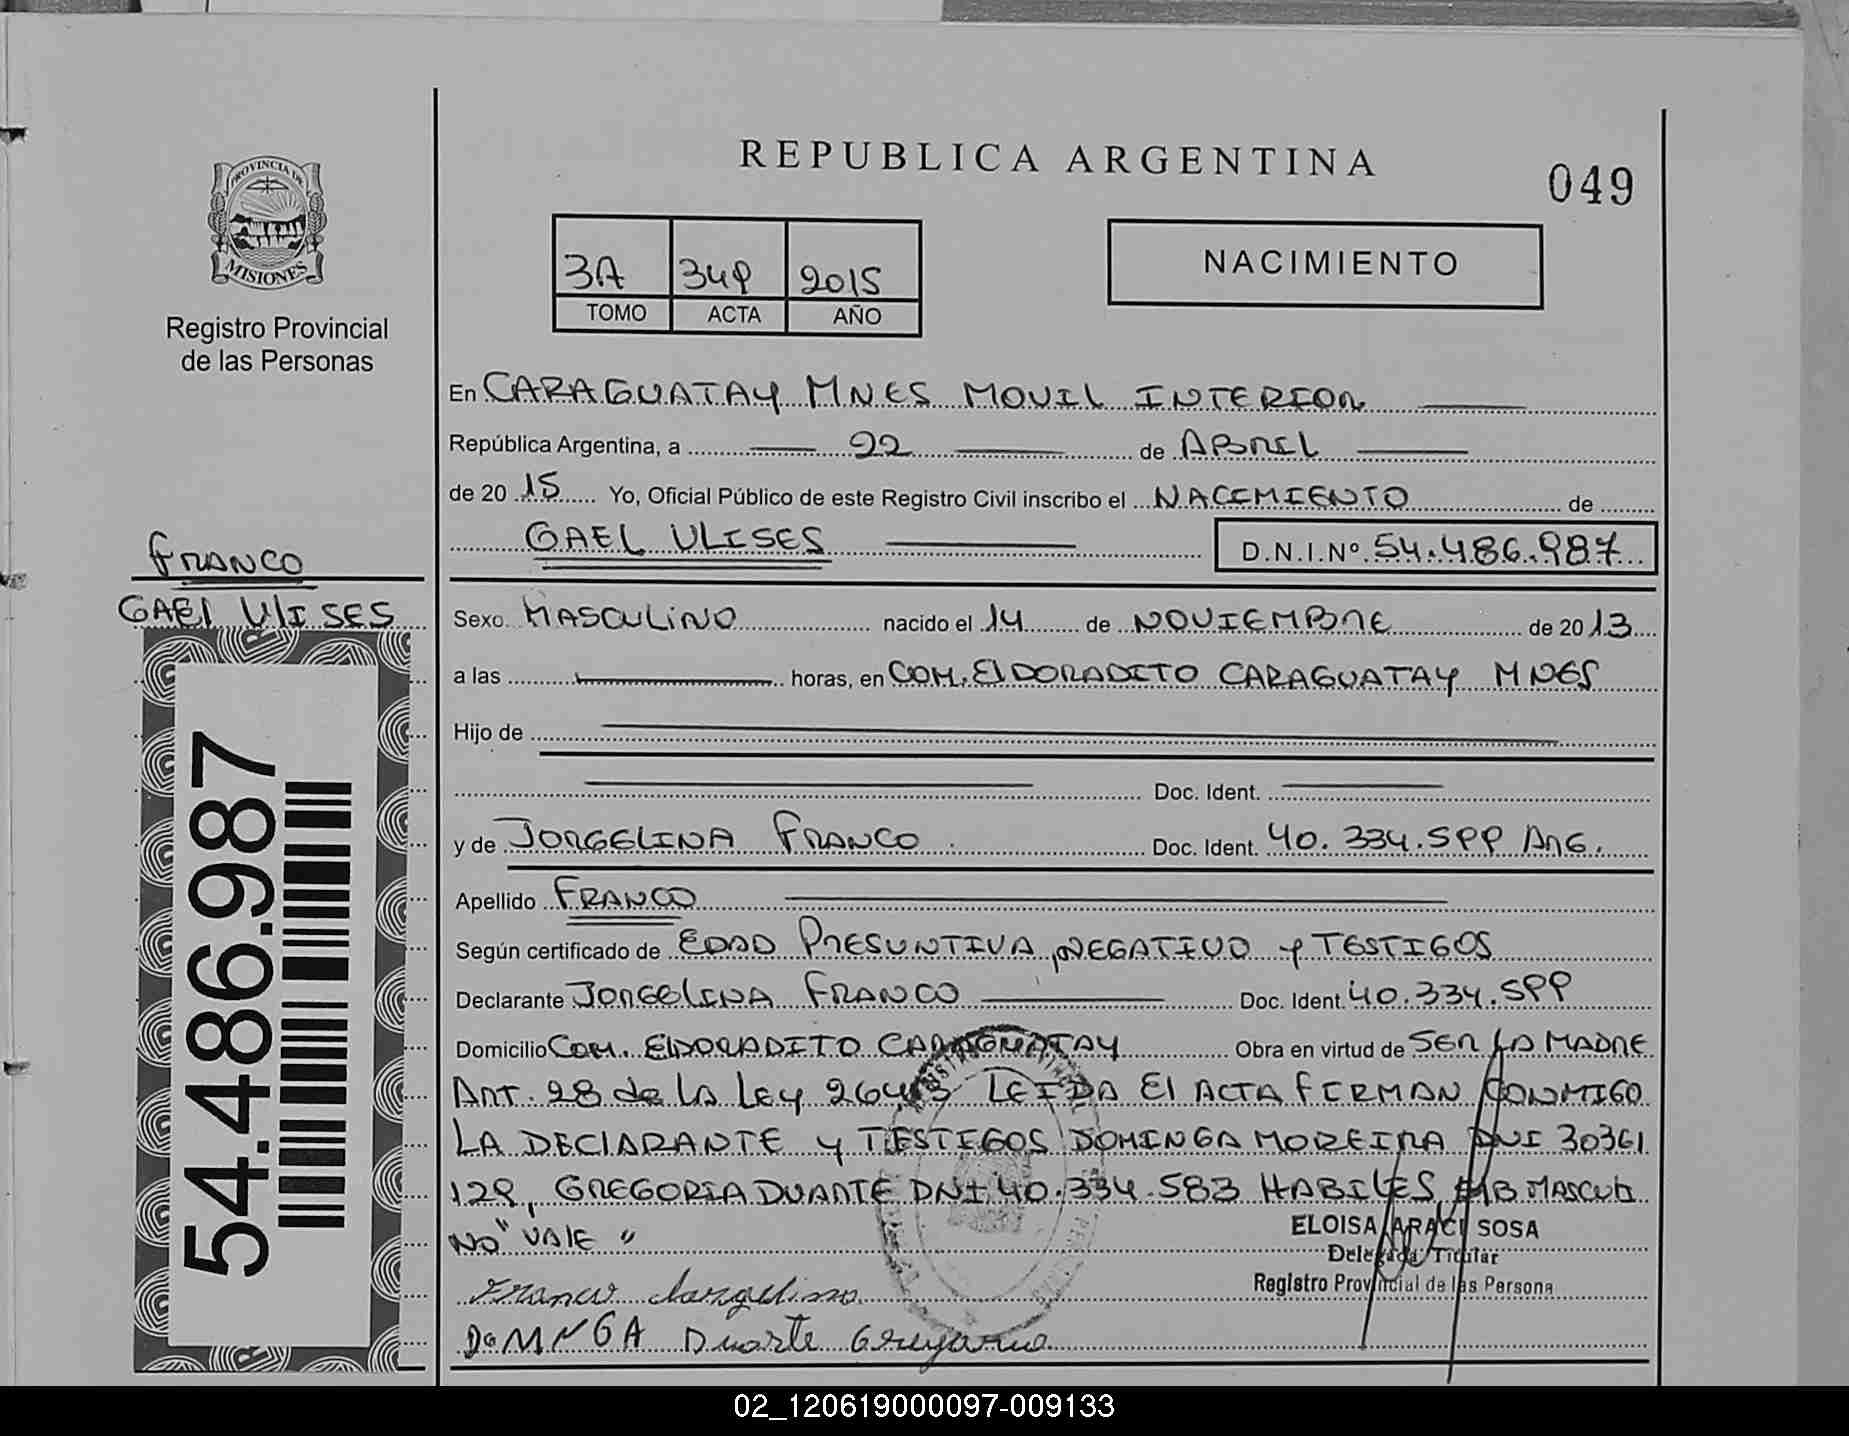 REPUBLICA ARGENTINA
049
PROVINCIA DE
MISIONES
Registro Provincial
de las Personas
3A 349 2015
TOMO ACTA AÑO
NACIMIENTO
En CARAGUATAY MNES MOVIL INTERIOR
República Argentina, a 22 de ABRIL
de 2015 Yo, Oficial Público de este Registro Civil inscribo el NACIMIENTO de
GAEL ULISES D.N.I.Nº 54.486.987
FRANCO
GAEL ULISES
54.486.987
Sexo MASCULINO nacido el 14 de NOVIEMBRE de 2013
a las horas, en COM. ELDORADITO CARAGUATAY MNES
Hijo de
Doc. Ident.
y de JORGELINA FRANCO Doc. Ident. 40.334.599 ARG.
Apellido FRANCO
Según certificado de EDAD PRESUNTIVA, NEGATIVO Y TESTIGOS
Declarante JORGELINA FRANCO Doc. Ident. 40.334.599
Domicilio COM. ELDORADITO CARAGUATAY Obra en virtud de SER LA MADRE
ART. 28 de LA LEY 26413 LEIDA El ACTA FIRMAN CONMIGO
LA DECLARANTE Y TESTIGOS DOMINGA MOREIRA DNI 30361
129, GREGORIA DUARTE DNI 40.334.583 HABILES E/B MASCULI
NO "VALE"
ELOISA ARACI SOSA
Delegada Titular
Registro Provincial de las Persona
Franco Jorgelina
DOMINGA Duarte Gregoria
02_120619000097-009133